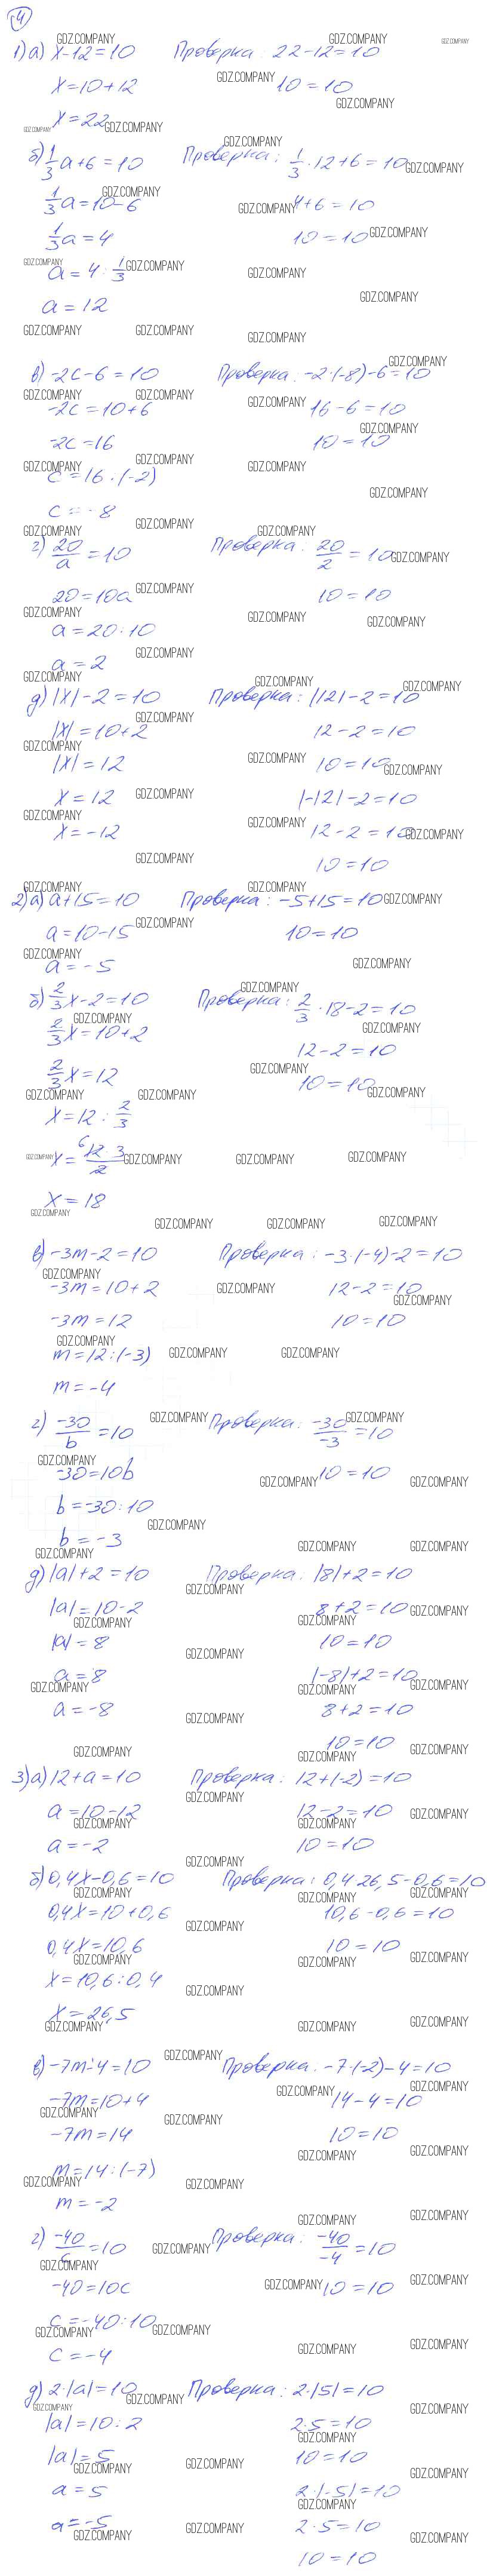 4
1) а) x-12=10 Проверка: 22-12=10
x=10+12 10=10
x=22
б) 1/3 a+6=10 Проверка: 1/3·12+6=10
1/3 a=10-6 4+6=10
1/3 a=4 10=10
a=4:1/3
a=12
в) -2c-6=10 Проверка: -2·(-8)-6=10
-2c=10+6 16-6=10
-2c=16 10=10
c=16:(-2)
c=-8
г) 20/a=10 Проверка: 20/2=10
20=10a 10=10
a=20:10
a=2
д) |x|-2=10 Проверка: |12|-2=10
|x|=10+2 12-2=10
|x|=12 10=10
x=12 |-12|-2=10
x=-12 12-2=10
10=10
2) а) a+15=10 Проверка: -5+15=10
a=10-15 10=10
a=-5
б) 2/3 x-2=10 Проверка: 2/3·18-2=10
2/3 x=10+2 12-2=10
2/3 x=12 10=10
x=12:2/3
x=6 12·3/2
x=18
в) -3m-2=10 Проверка: -3·(-4)-2=10
-3m=10+2 12-2=10
-3m=12 10=10
m=12:(-3)
m=-4
г) -30/b=10 Проверка: -30/-3=10
-30=10b 10=10
b=-30:10
b=-3
д) |a|+2=10 Проверка: |8|+2=10
|a|=10-2 8+2=10
|a|=8 10=10
a=8 |-8|+2=10
a=-8 8+2=10
10=10
3) а) 12+a=10 Проверка: 12+(-2)=10
a=10-12 12-2=10
a=-2 10=10
б) 0,4x-0,6=10 Проверка: 0,4·26,5-0,6=10
0,4x=10+0,6 10,6-0,6=10
0,4x=10,6 10=10
x=10,6:0,4
x=26,5
в) -7m-4=10 Проверка: -7·(-2)-4=10
-7m=10+4 14-4=10
-7m=14 10=10
m=14:(-7)
m=-2
г) -40/c=10 Проверка: -40/-4=10
-40=10c 10=10
c=-40:10
c=-4
д) 2·|a|=10 Проверка: 2·|5|=10
|a|=10:2 2·5=10
|a|=5 10=10
a=5 2·|-5|=10
a=-5 2·5=10
10=10
GDZ.COMPANY